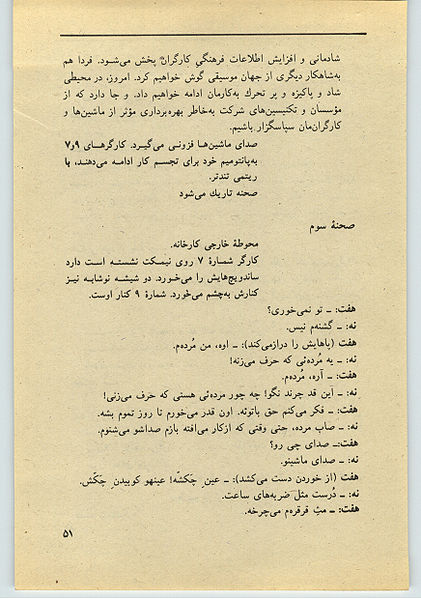 شادمانی و افزایش اطلاعات فرهنگیِ کارگران پخش می‌شود. فردا هم
به‌شاهکار دیگری از جهان موسیقی گوش خواهیم کرد. امروز، در محیطی
شاد و پاکیزه و پر تحرك به‌کارمان ادامه خواهیم داد. و جا دارد که از
مؤسسان و تکنیسین‌های شرکت به‌خاطر بهره‌برداری مؤثر از ماشین‌ها و
کارگران‌مان سپاسگزار باشیم.
صدای ماشین‌ها فزونی می‌گیرد. کارگرهای ۹و۷
به‌پانتومیم خود برای تجسم کار ادامه می‌دهند، با
ریتمی تندتر.
صحنه تاریك می‌شود
صحنهٔ سوم
محوطهٔ خارجی کارخانه.
کارگر شمارهٔ ۷ روی نیمکت نشسته است دارد
ساندویچ‌هایش را می‌خورد. دو شیشه نوشابه نیز
کنارش به‌چشم می‌خورد. شمارهٔ ۹ کنار اوست.
هفت: ـ تو نمی‌خوری؟
نه: ـ گشنه‌م نیس.
هفت (پاهایش را درازمی‌کند): ـ اوه، من مُرده‌م.
نه: ـ یه مُرده‌ئی که حرف می‌زنه!
هفت: ـ آره، مُرده‌م.
نه: ـ این قد چرند نگو! چه جور مرده‌ئی هستی که حرف می‌زنی!
هفت: ـ فکر می‌کنم حق باتوئه. اون قدر می‌خورم تا روز تموم بشه.
نه: ـ صاب مرده، حتی وقتی که ازکار می‌افته بازم صداشو می‌شنوم.
هفت: ـ صدای چی رو؟
نه: ـ صدای ماشینو.
هفت (از خوردن دست می‌کشد): ـ عینِ چَکشّه! عینهو کوبیدنِ چَکّش.
نه: ـ دُرست مثل ضربه‌های ساعت.
هفت: ـ مثِ فرفره‌م می‌چرخه.
۵۱